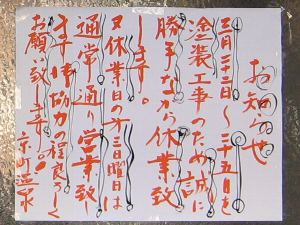 お知らせ
三月二十二日〜二十五日まで
塗装工事のため誠に
勝手ながら休業致
します。
又休業日の第三日曜日は
通常通り営業致
します 御協力の程宜しく
お願い致します。
京町温泉